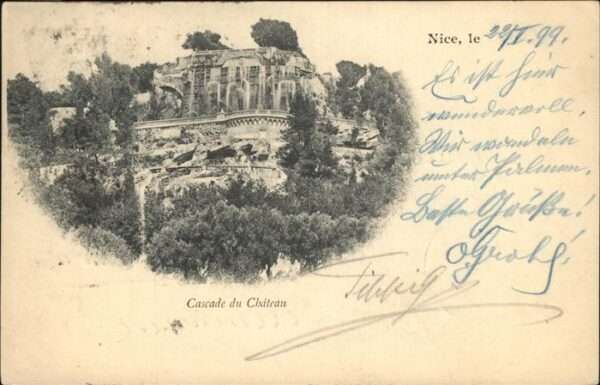 Nice, le 22/I. 99.
Es ist hier
wundervoll.
Wir wandeln
unter Palmen.
Beste Grüße!
Cascade du Château